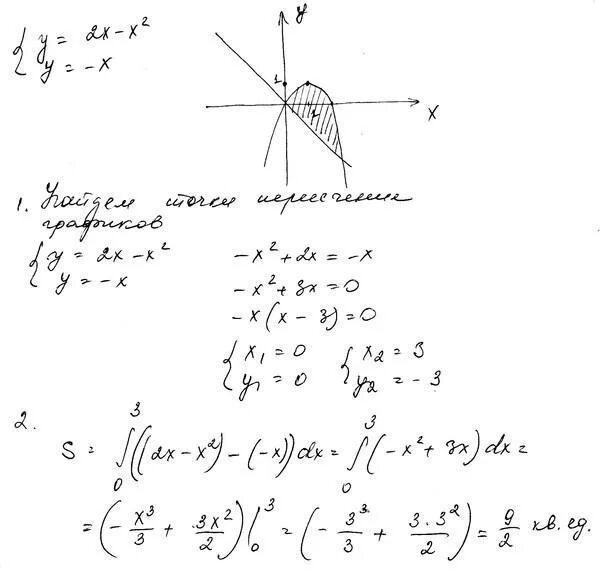 { y = 2x - x²
{ y = -x
y
1
1
x
1. Найдем точки пересечения
графиков
{ y = 2x - x²
{ y = -x
-x² + 2x = -x
-x² + 3x = 0
-x(x - 3) = 0
{ x₁ = 0 { x₂ = 3
{ y₁ = 0 { y₂ = -3
2.
S = ∫₀³ ((2x - x²) - (-x)) dx = ∫₀³ (-x² + 3x) dx =
= (-x³/3 + 3x²/2) |₀³ = (-3³/3 + 3·3²/2) = 9/2 кв. ед.